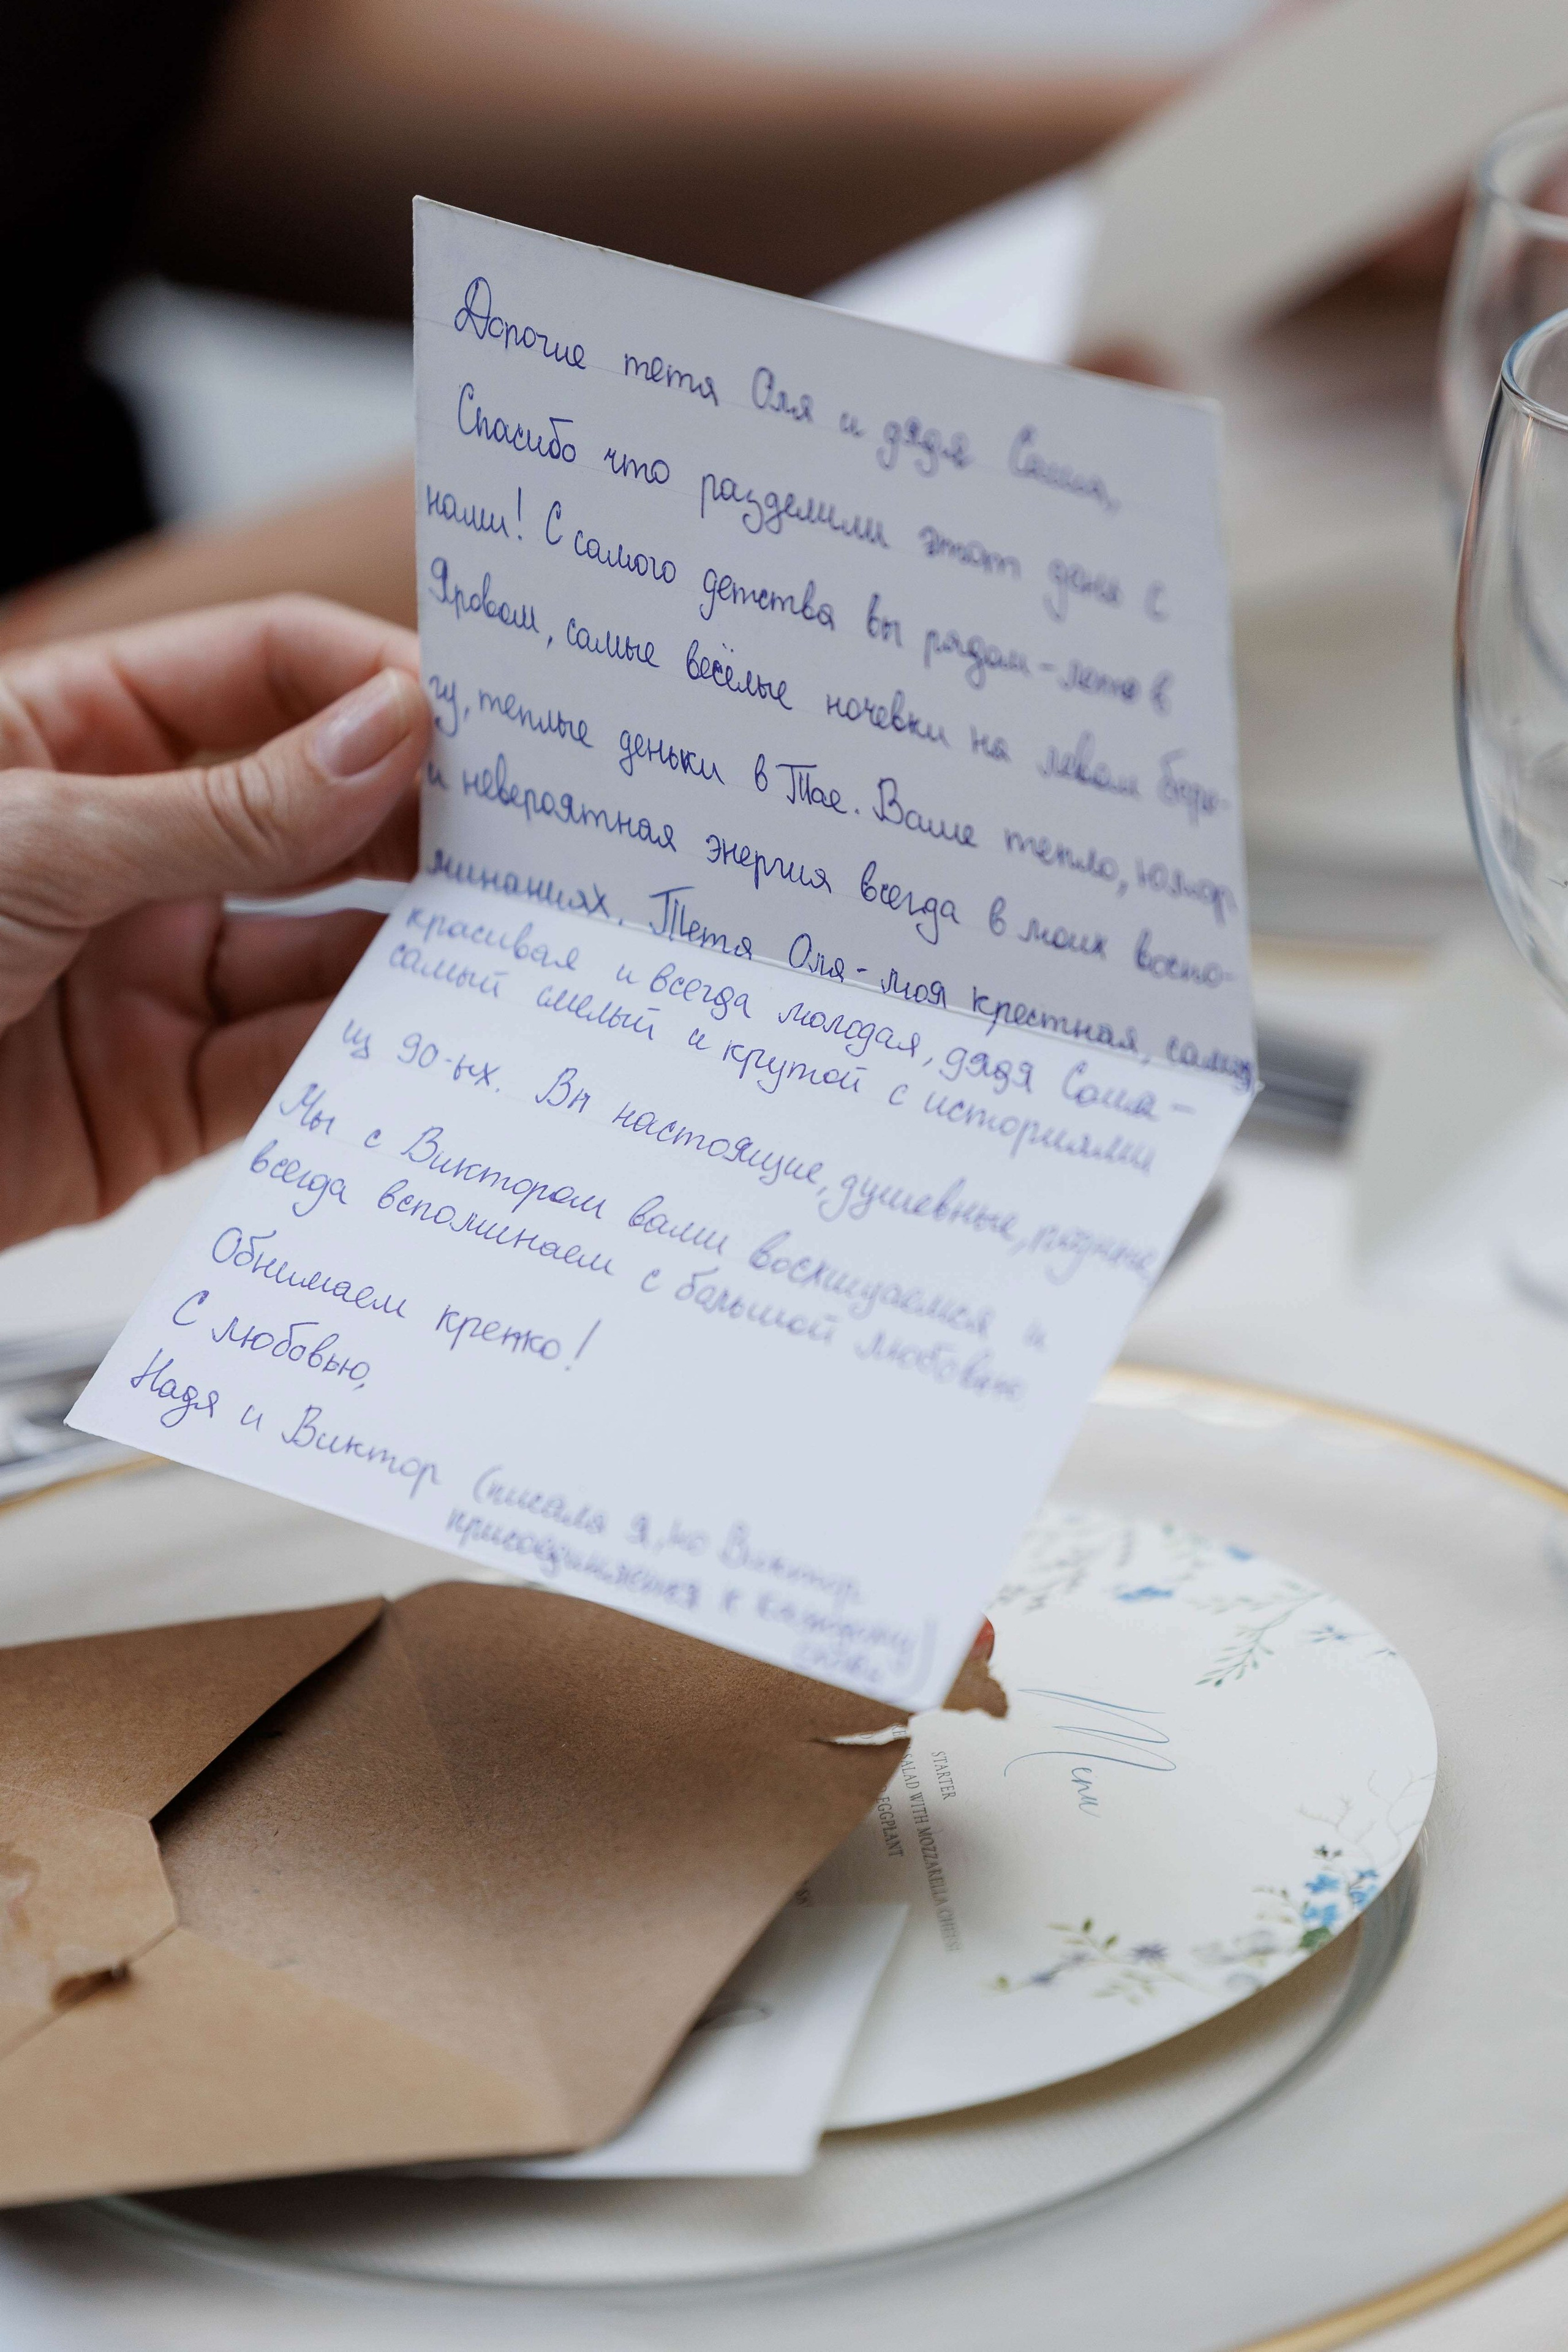 Дорогие тетя Оля и дядя Саша,
Спасибо что разделили этот день с
нами! С самого детства вы рядом - лето в
Яровом, самые весёлые ночевки на левом бере-
гу, теплые деньки в Тае. Ваше тепло, юмор
и невероятная энергия всегда в моих воспо-
минаниях. Тетя Оля - моя крестная, самая
красивая и всегда молодая, дядя Саша -
самый смелый и крутой с историями
из 90-ых. Вы настоящие, душевные, родные
Мы с Виктором вами восхищаемся и
всегда вспоминаем с большой любовью
Обнимаем крепко!
С любовью,
Надя и Виктор (писала я, но Виктор
присоединяется к каждому
слову)
Menu
STARTER
SALAD WITH MOZZARELLA CHEESE
EGGPLANT